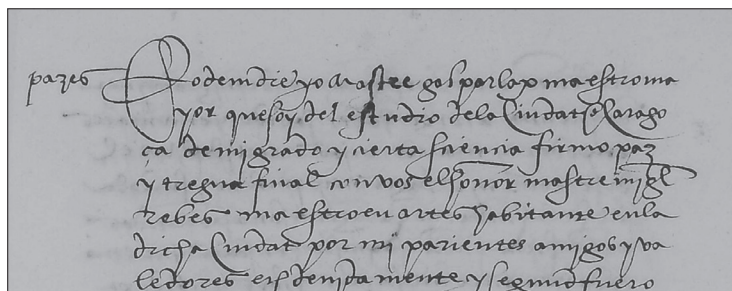 pazes Eodemdie yo maestre gaspar lax maestro ma
yor que soy del estudio dela Ciudat de Carago
ça de mi grado y cierta sciencia firmo paz
y tregua final con vos el honor mastre migl
Rebes maestro en artes habitante en la
dicha Ciudat por mi parientes amigos y va
ledores exsdenidamente y segund fuero